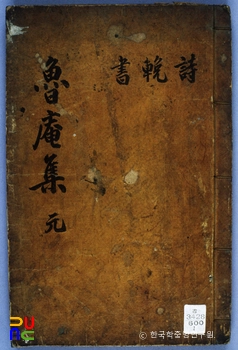 詩 輓 書
魯庵集 元
3428
600
© 한국학중앙연구원